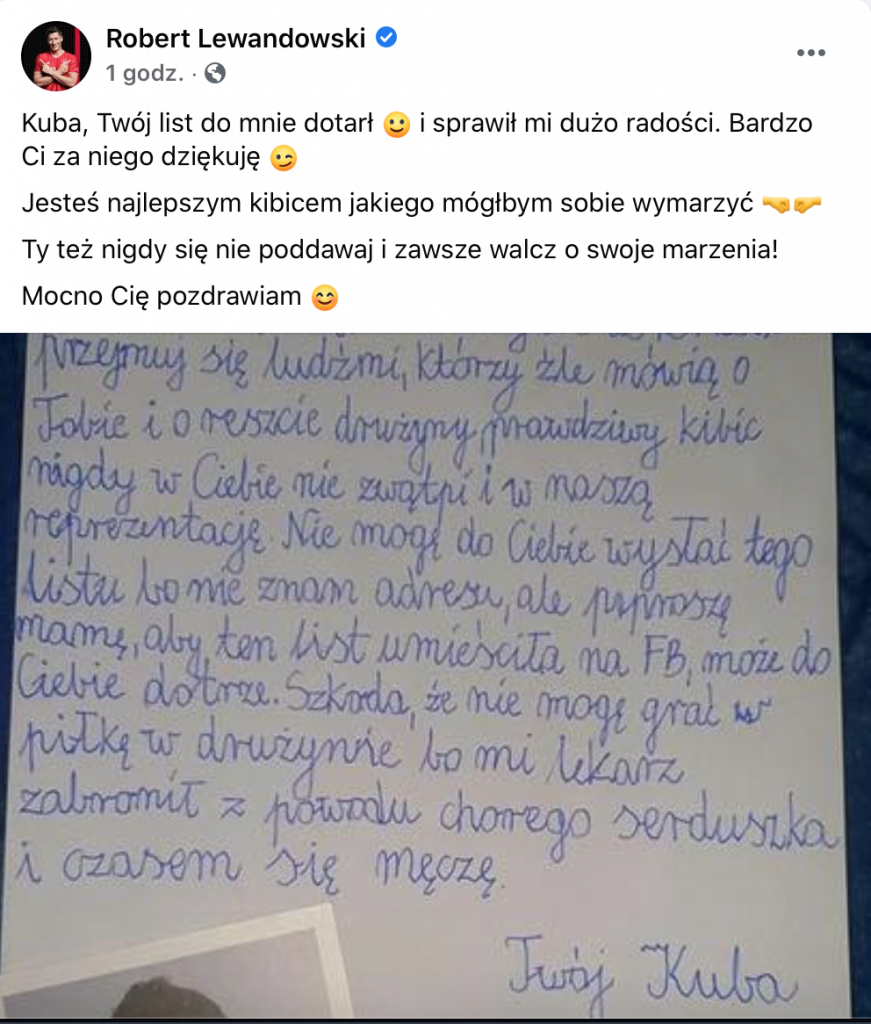 Robert Lewandowski
1 godz. ·
Kuba, Twój list do mnie dotarł 🙂 i sprawił mi dużo radości. Bardzo
Ci za niego dziękuję 😉
Jesteś najlepszym kibicem jakiego mógłbym sobie wymarzyć 🤜🤛
Ty też nigdy się nie poddawaj i zawsze walcz o swoje marzenia!
Mocno Cię pozdrawiam 😊
przejmuj się ludźmi, którzy źle mówią o
Tobie i o reszcie drużyny prawdziwy kibic
nigdy w Ciebie nie zwątpi i w naszą
reprezentację. Nie mogę do Ciebie wysłać tego
listu bo nie znam adresu, ale poproszę
mamę, aby ten list umieściła na FB, może do
Ciebie dotrze. Szkoda, że nie mogę grać w
piłkę w drużynie bo mi lekarz
zabronił z powodu chorego serduszka
i czasem się męczę.
Twój Kuba